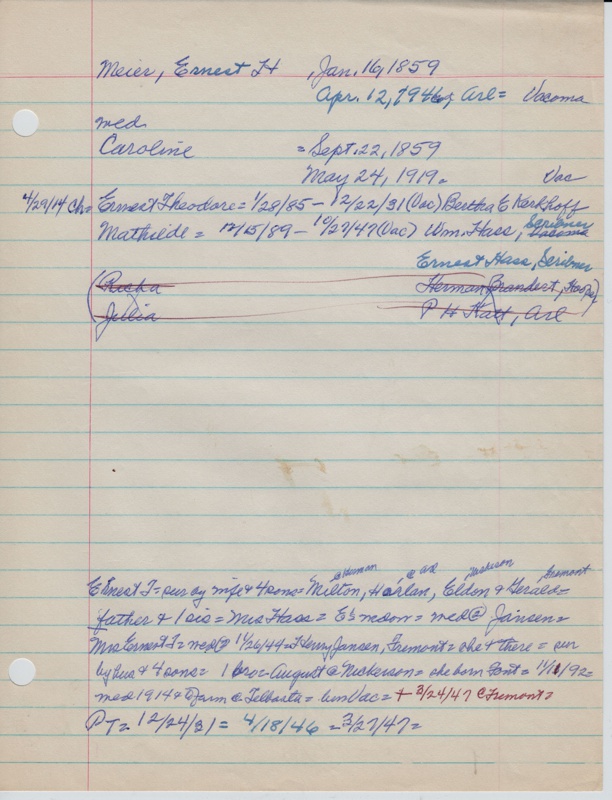 Meier, Ernest H , Jan. 16, 1859
Apr. 12, 1946 Arl= Vacoma
med.
Caroline = Sept. 22, 1859
May 24, 1919= Vac
4/29/14 Ch= Ernest Theodore = 1/28/85 - 12/22/31 (Vac) Bertha E Kerkhoff
Mathilde = 12/15/89 - 10/27/47 (Vac) Wm. Hass, Vacoma Scribner
Ernest Hass, Scribner
(Ricka Herman Brandert, Hooper)
Julia P H Katt, Arl
@ Human @ Arl Nickerson Fremont
Ernest T= sur by wife & 4 sons= Milton, Harlan, Eldon & Gerald=
father & 1 sis = Mrs Hass = E's = med @ Jansen=
Mrs Ernest T= med @ 11/26/44= Henry Jansen, Fremont= she & there = sur
by hus & 4 sons= 1 bro= August @ Nickerson= she born Font= 11/11/92=
med 1914 & farm @ Telbasta= Vac= + 3/24/47 @ Fremont=
P T= 12/24/31= 4/18/46 = 3/27/47=